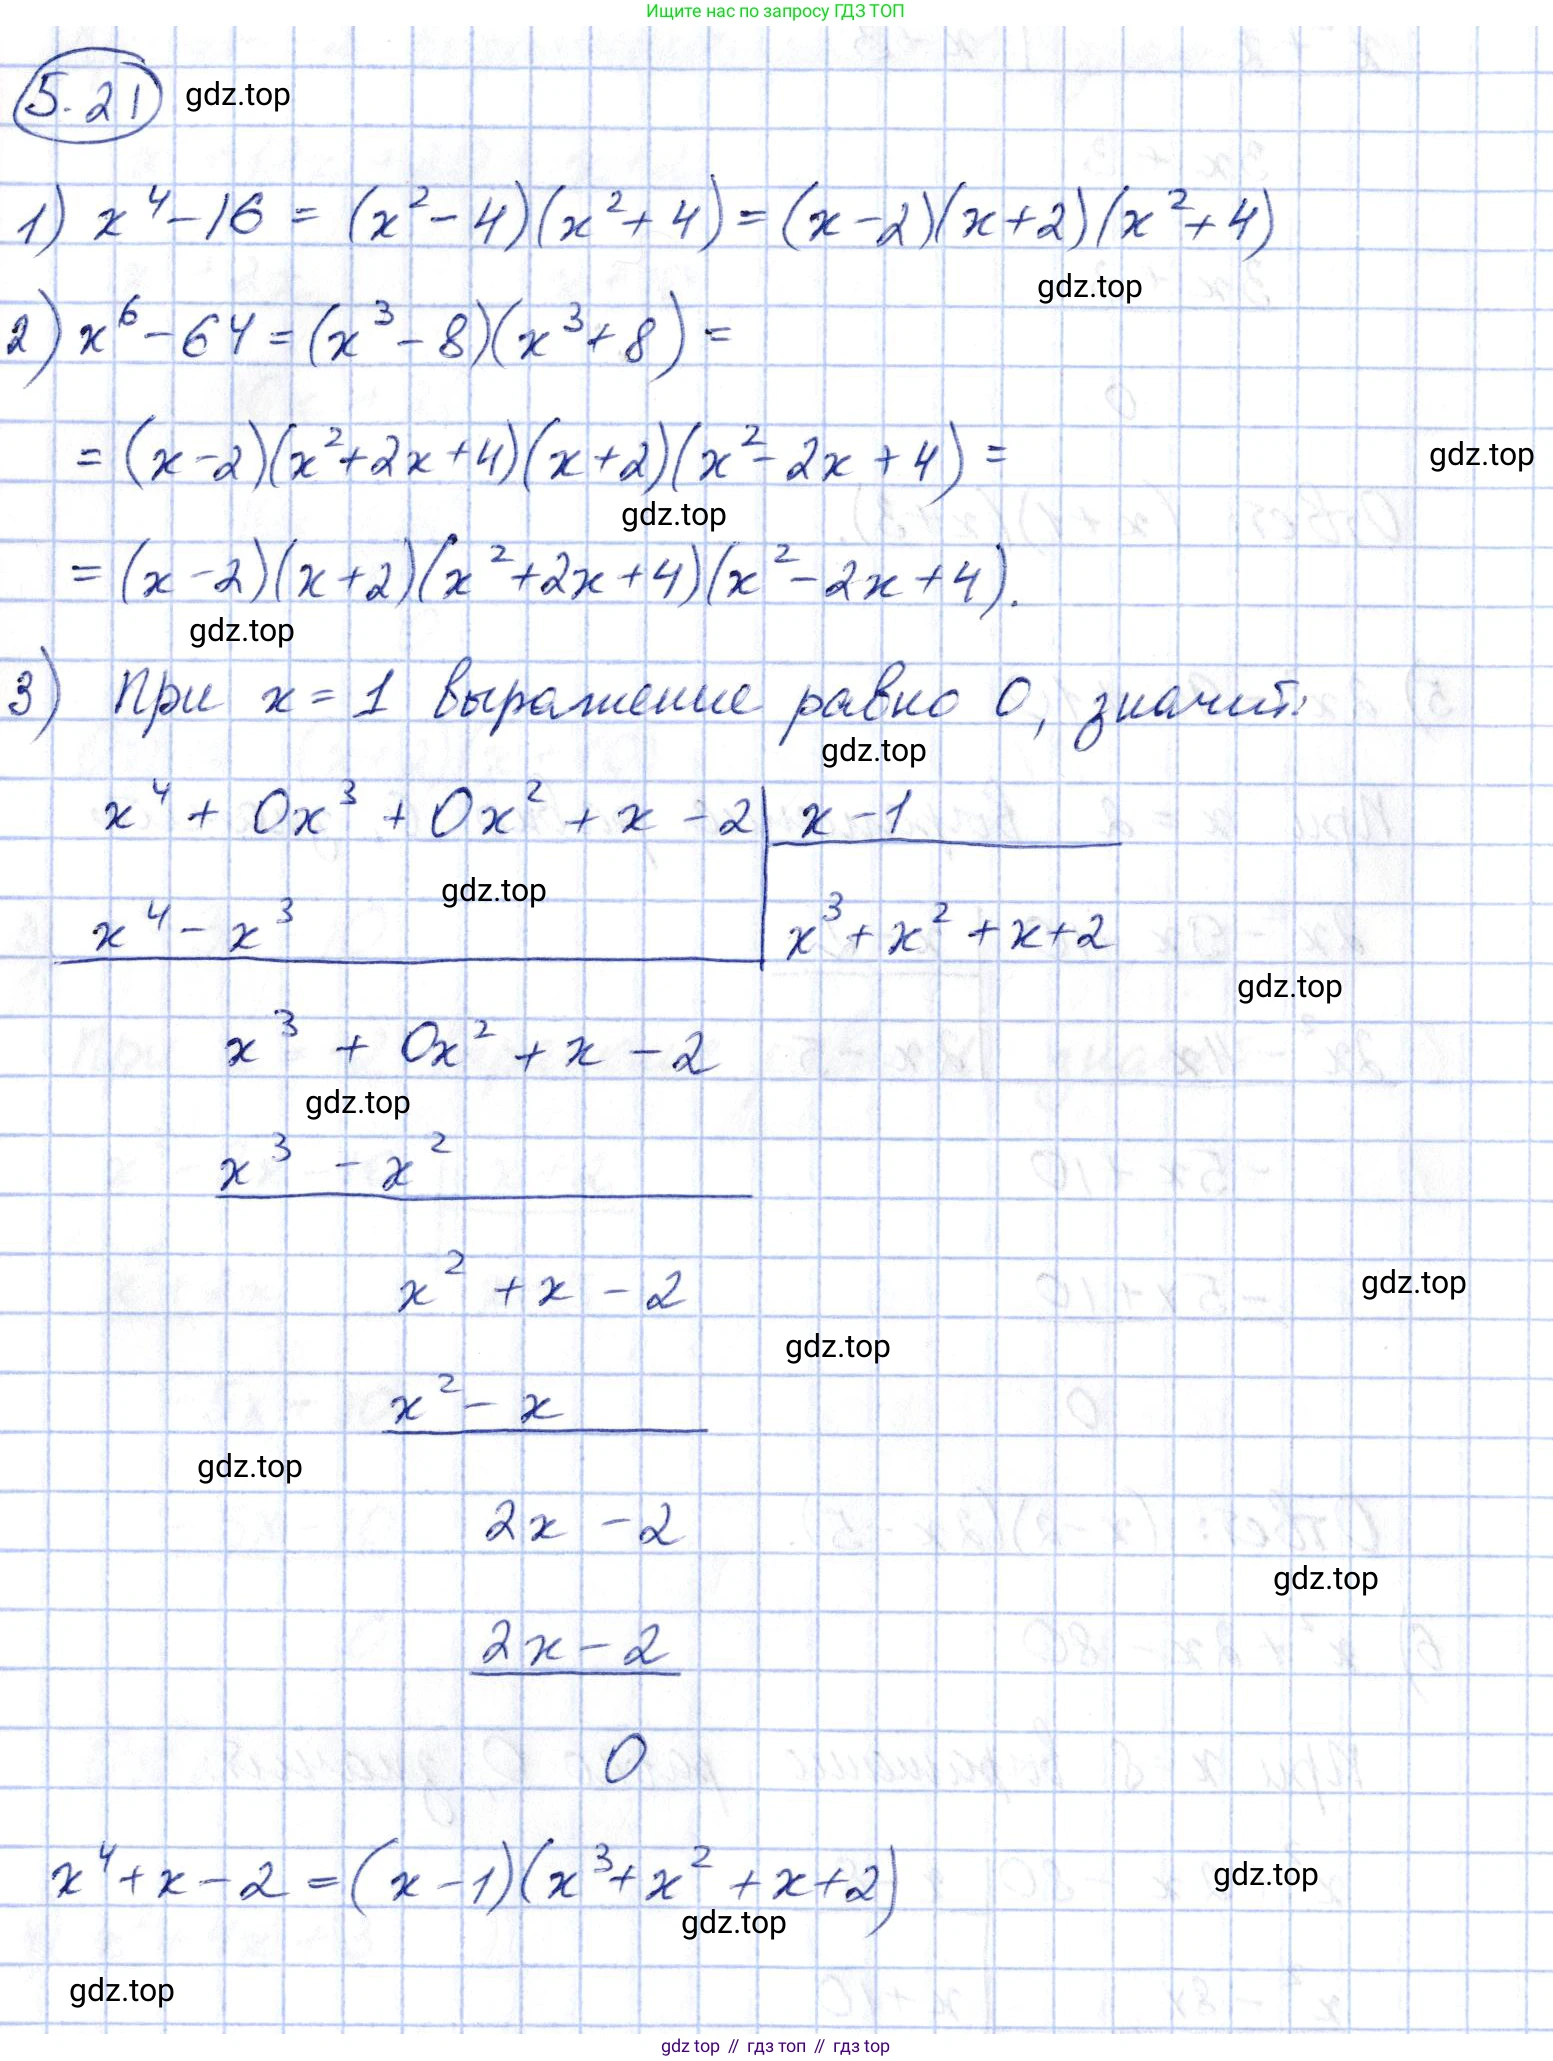 Ищите нас по запросу ГДЗ ТОП
5.21 gdz.top
1) x⁴ - 16 = (x² - 4)(x² + 4) = (x - 2)(x + 2)(x² + 4)
gdz.top
2) x⁶ - 64 = (x³ - 8)(x³ + 8) =
= (x - 2)(x² + 2x + 4)(x + 2)(x² - 2x + 4) =
gdz.top
gdz.top
= (x - 2)(x + 2)(x² + 2x + 4)(x² - 2x + 4).
gdz.top
3) При x = 1 выражение равно 0, значит:
gdz.top
x⁴ + 0x³ + 0x² + x - 2 | x - 1
gdz.top
x⁴ - x³ | x³ + x² + x + 2
gdz.top
x³ + 0x² + x - 2
gdz.top
x³ - x²
x² + x - 2
gdz.top
gdz.top
x² - x
gdz.top
2x - 2
gdz.top
2x - 2
0
x⁴ + x - 2 = (x - 1)(x³ + x² + x + 2)
gdz.top
gdz.top
gdz.top
gdz top // гдз топ // гдз top